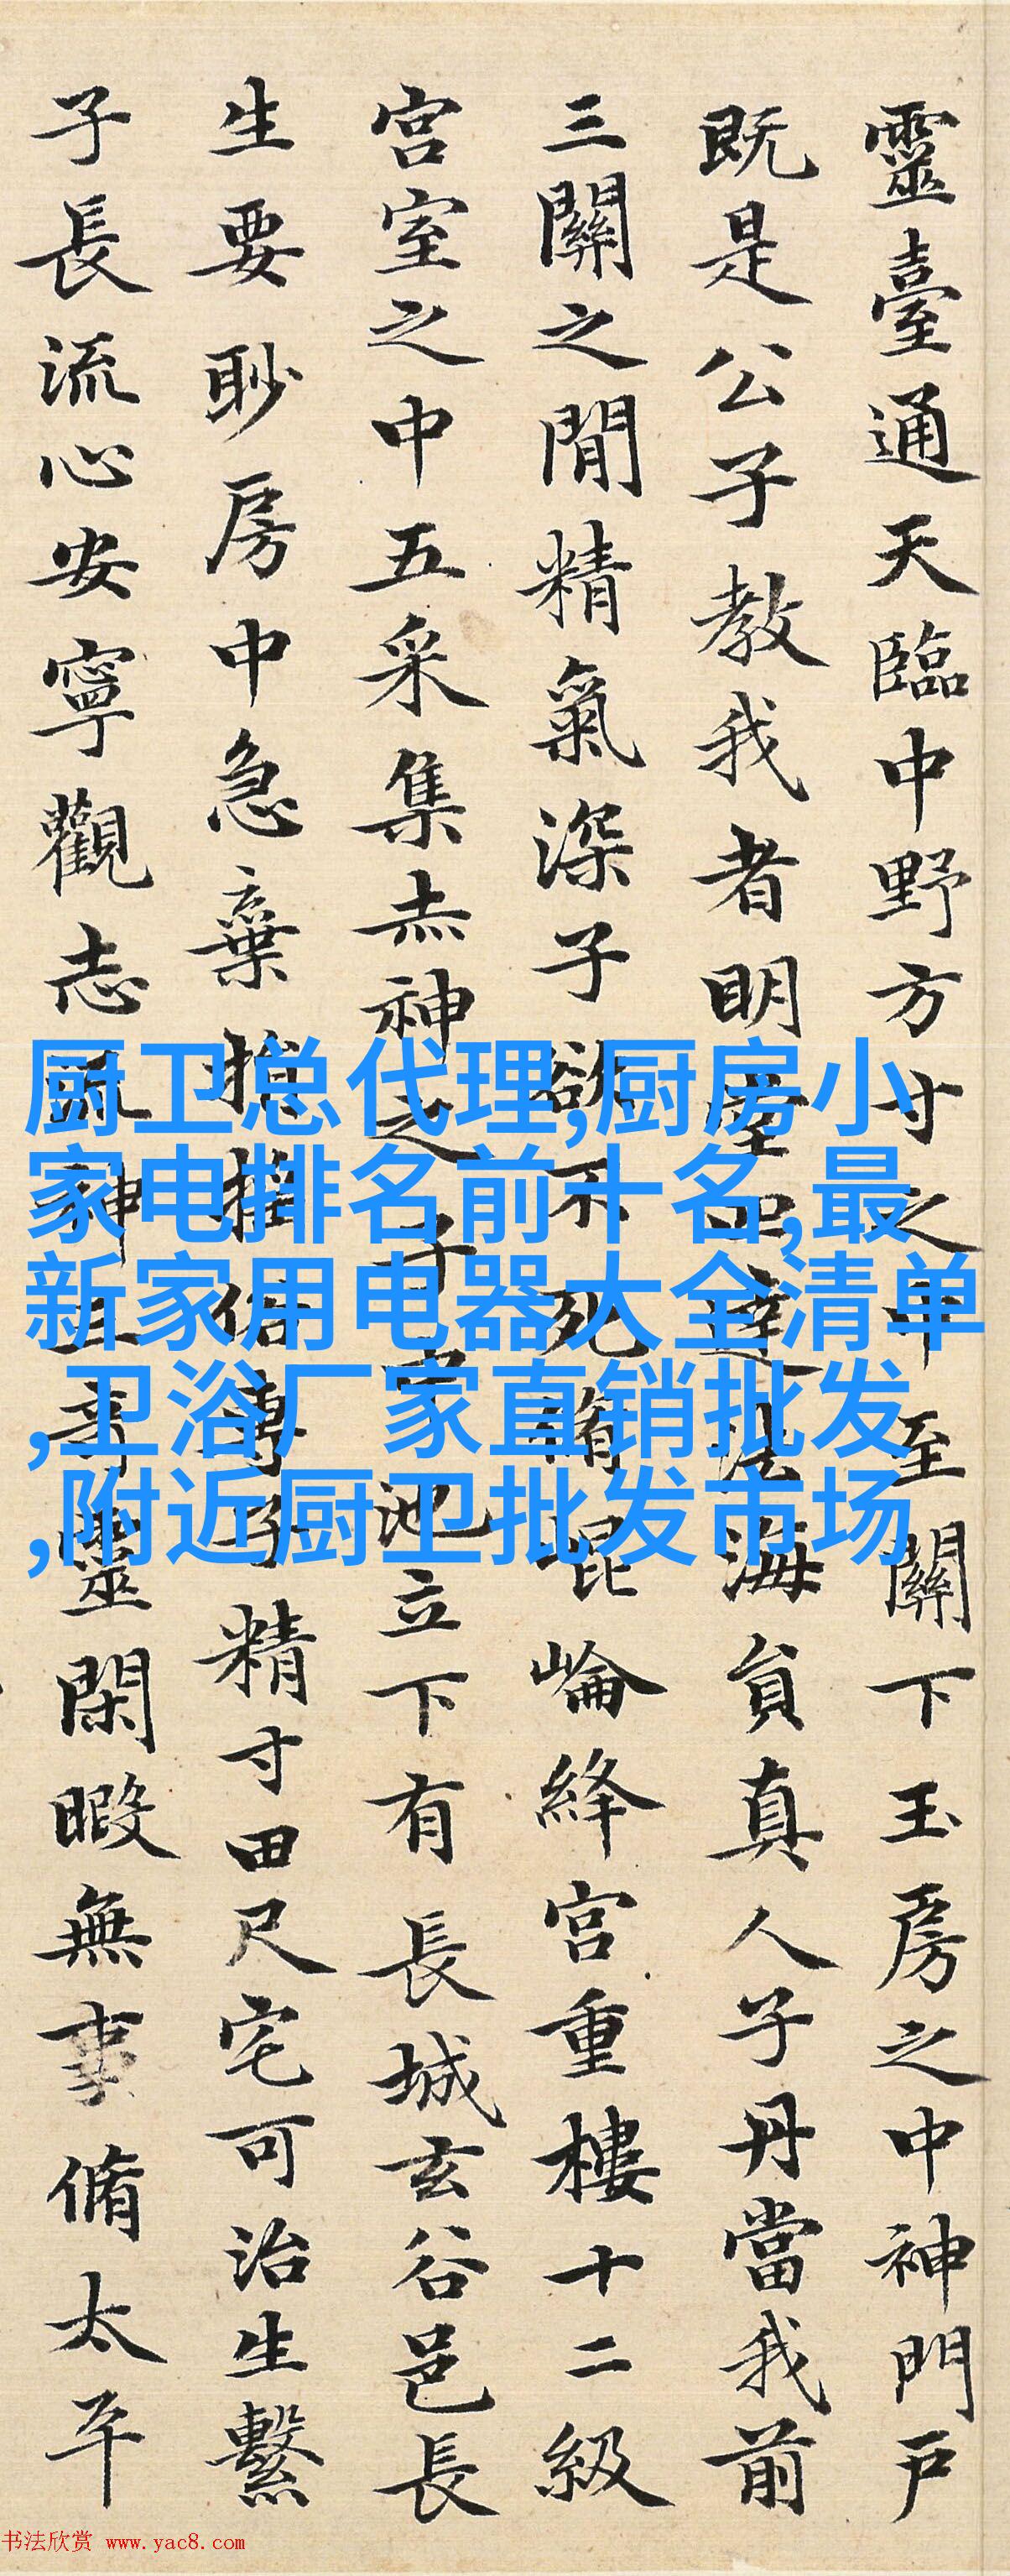 靈臺通天臨中野方寸之中至關下玉房之中神門戶
既是公子教我者明堂四達法海員真人子丹當我前
三關之間精氣深子欲不死脩崑崙絳宮重樓十二級
宮室之中五采集赤神之子中池立下有長城玄谷邑長
生要眇房中急棄捐搖俗專子精寸田尺宅可治生繫
子長流心安寧觀志流神三奇靈閑暇無事脩太平
厨卫总代理,厨房小
家电排名前十名,最
新家用电器大全清单
,卫浴厂家直销批发
,附近厨卫批发市场
书法欣赏 www.yac8.com